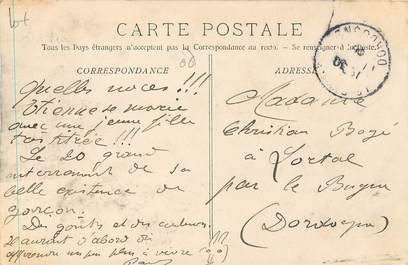 CARTE POSTALE
Tous les Pays étrangers n'acceptent pas la Correspondance au recto. – Se renseigner à la Poste.
CORRESPONDANCE
ADRESSE
Quelles noces !!!
Etienne se marie
avec une jeune fille
très titrée !!!
Le 20 grand
enterrement de sa
belle existence de
garçon.
Des goûts et des couleurs
il auront d'abord de
apprendre un peu plus à vivre
Madame
Christian Bogé
à Lortal
par le Bugue
(Dordogne)